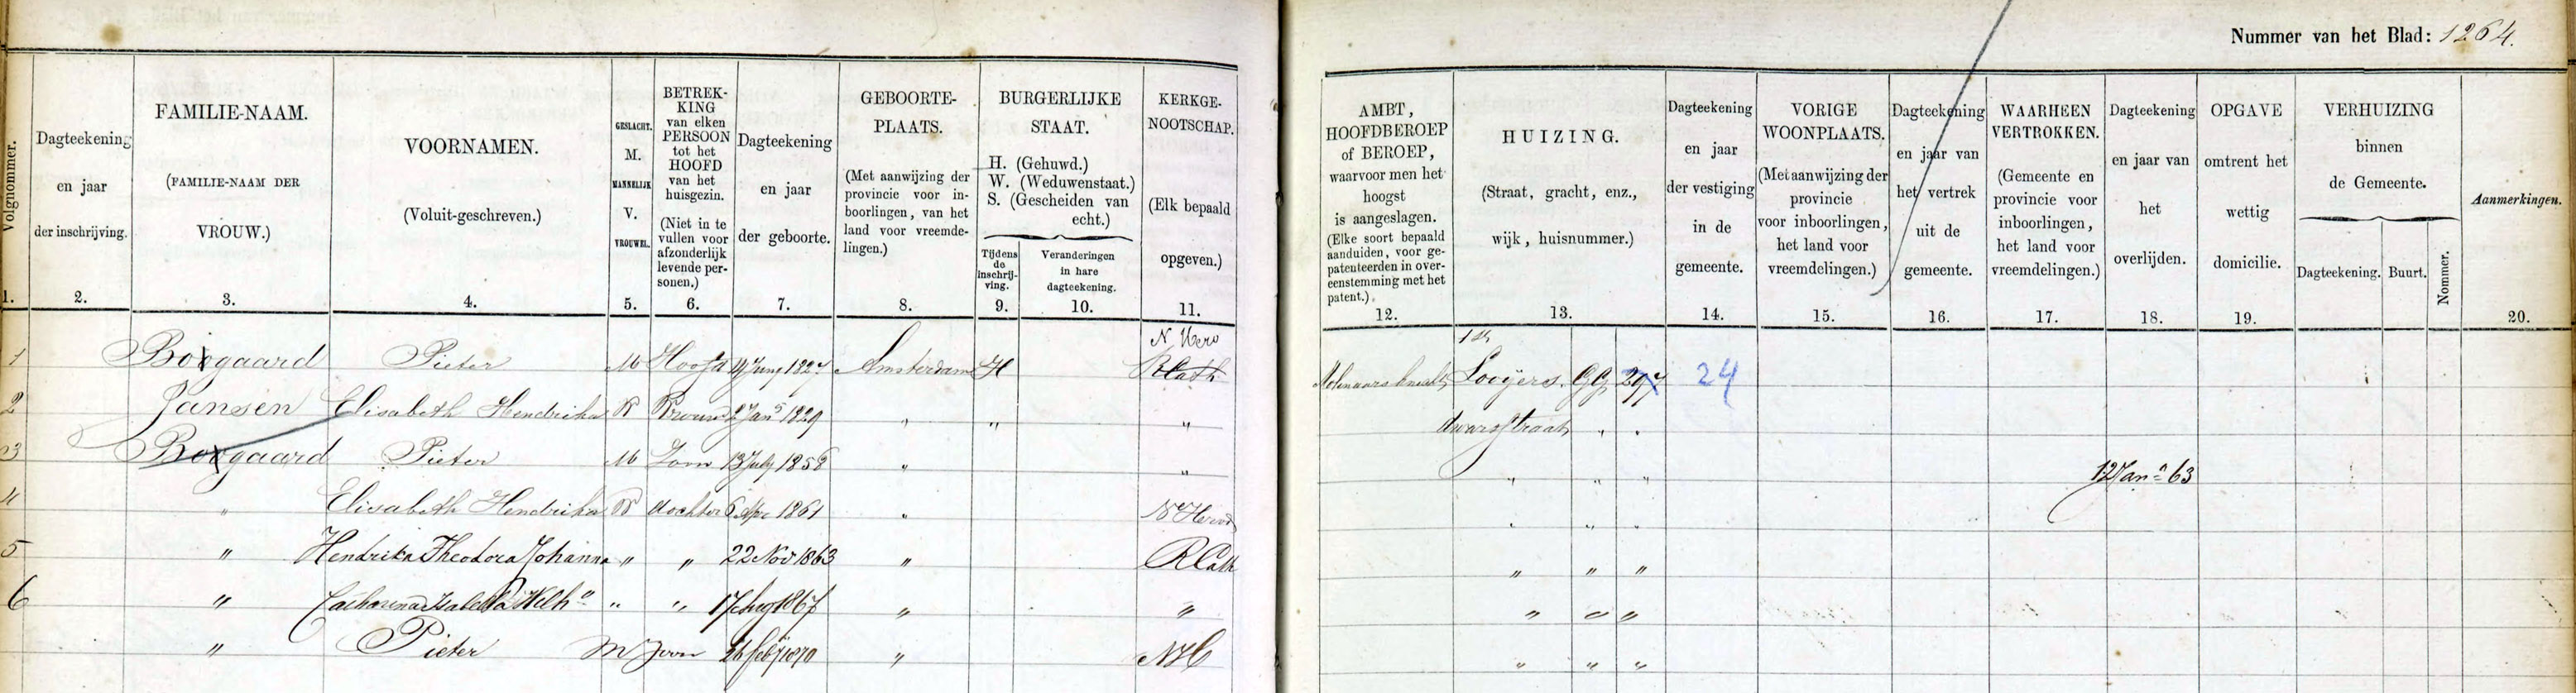 Nummer van het Blad: 1264.
Volgnommer.
1.
Dagteekening
en jaar
der inschrijving.
2.
FAMILIE-NAAM.
(FAMILIE-NAAM DER
VROUW.)
3.
VOORNAMEN.
(Voluit-geschreven.)
4.
GESLACHT.
M.
MANNELIJK
V.
VROUWEL.
5.
BETREK-
KING
van elken
PERSOON
tot het
HOOFD
van het
huisgezin.
(Niet in te
vullen voor
afzonderlijk
levende per-
sonen.)
6.
Dagteekening
en jaar
der geboorte.
7.
GEBOORTE-
PLAATS.
(Met aanwijzing der
provincie voor in-
boorlingen, van het
land voor vreemde-
lingen.)
8.
BURGERLIJKE
STAAT.
H. (Gehuwd.)
W. (Weduwenstaat.)
S. (Gescheiden van
echt.)
Tijdens
de
inschrij-
ving.
9.
Veranderingen
in hare
dagteekening.
10.
KERKGE-
NOOTSCHAP.
(Elk bepaald
opgeven.)
11.
AMBT,
HOOFDBEROEP
of BEROEP,
waarvoor men het
hoogst
is aangeslagen.
(Elke soort bepaald
aanduiden, voor ge-
patenteerden in over-
eenstemming met het
patent.)
12.
HUIZING.
(Straat, gracht, enz.,
wijk, huisnummer.)
13.
Dagteekening
en jaar
der vestiging
in de
gemeente.
14.
VORIGE
WOONPLAATS.
(Met aanwijzing der
provincie
voor inboorlingen,
het land voor
vreemdelingen.)
15.
Dagteekening
en jaar van
het vertrek
uit de
gemeente.
16.
WAARHEEN
VERTROKKEN.
(Gemeente en
provincie voor
inboorlingen,
het land voor
vreemdelingen.)
17.
Dagteekening
en jaar van
het
overlijden.
18.
OPGAVE
omtrent het
wettig
domicilie.
19.
VERHUIZING
binnen
de Gemeente.
Dagteekening.
Buurt.
Nommer.
Aanmerkingen.
20.
N Herv
1 Bogaard Pieter M Hoofd Juny 1827 Amsterdam H R Cath Looijers GG 297 24
2 Jansen Elisabeth Hendrika V Vrouw 2 Jan 1829 " " " dwarsstraat " "
3 Bogaard Pieter M Zoon 13 July 1858 " " " " " 12 Jan 63
4 " Elisabeth Hendrika V dochter 6 1861 " N Herv " " "
5 " Hendrika Theodora Johanna " " 22 Nov 1863 " R Cath " " "
6 " Catharina Isabella Wilh " " 17 Aug 1867 " " " " "
" Pieter M Zoon 26 feb 1870 " NH " " "